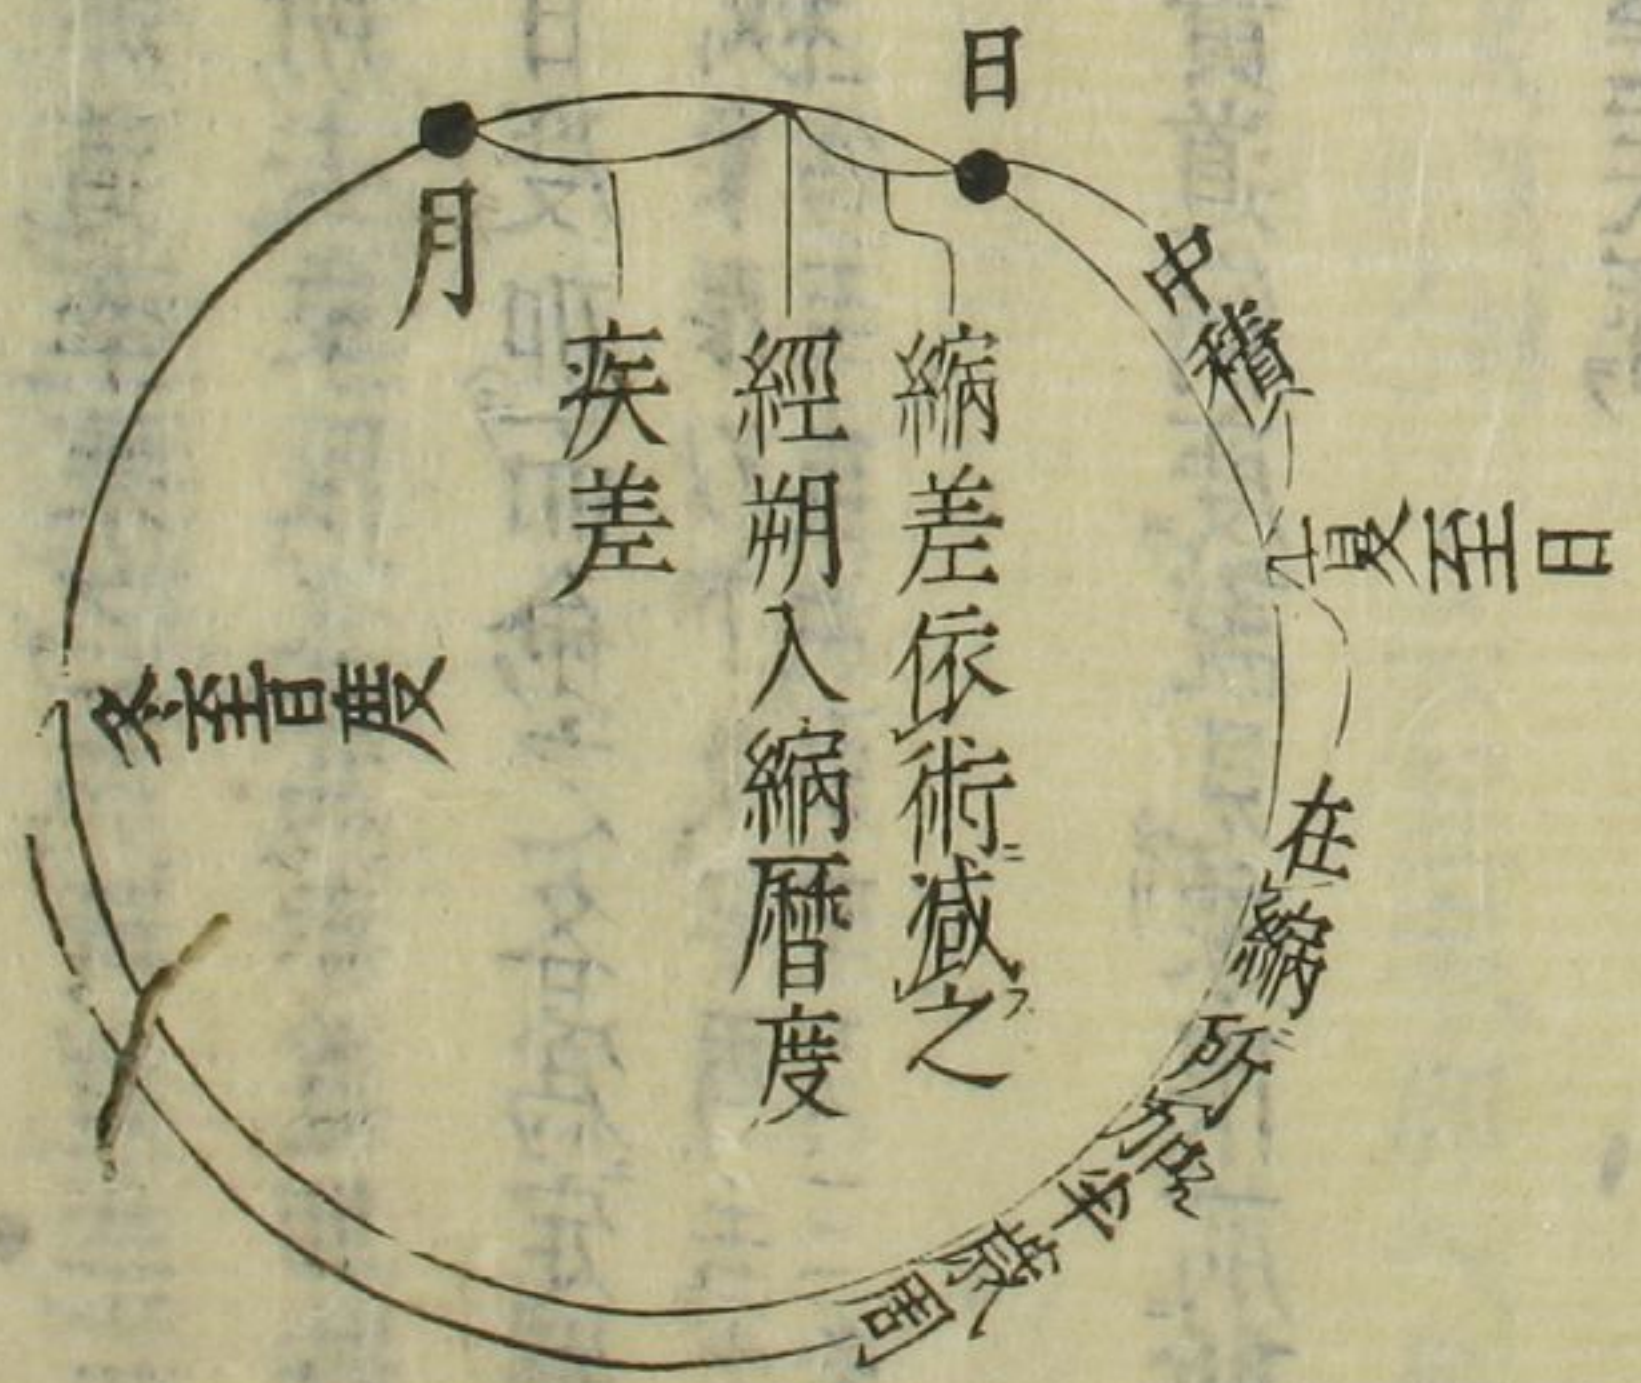 日
中積
夏至日
在縮所加半歳周
縮差依術減之
經朔入縮暦度
疾差
月
冬至日度